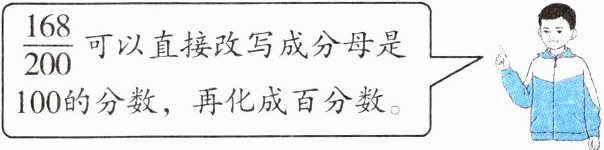 168/200 可以直接改写成分母是
100的分数，再化成百分数。